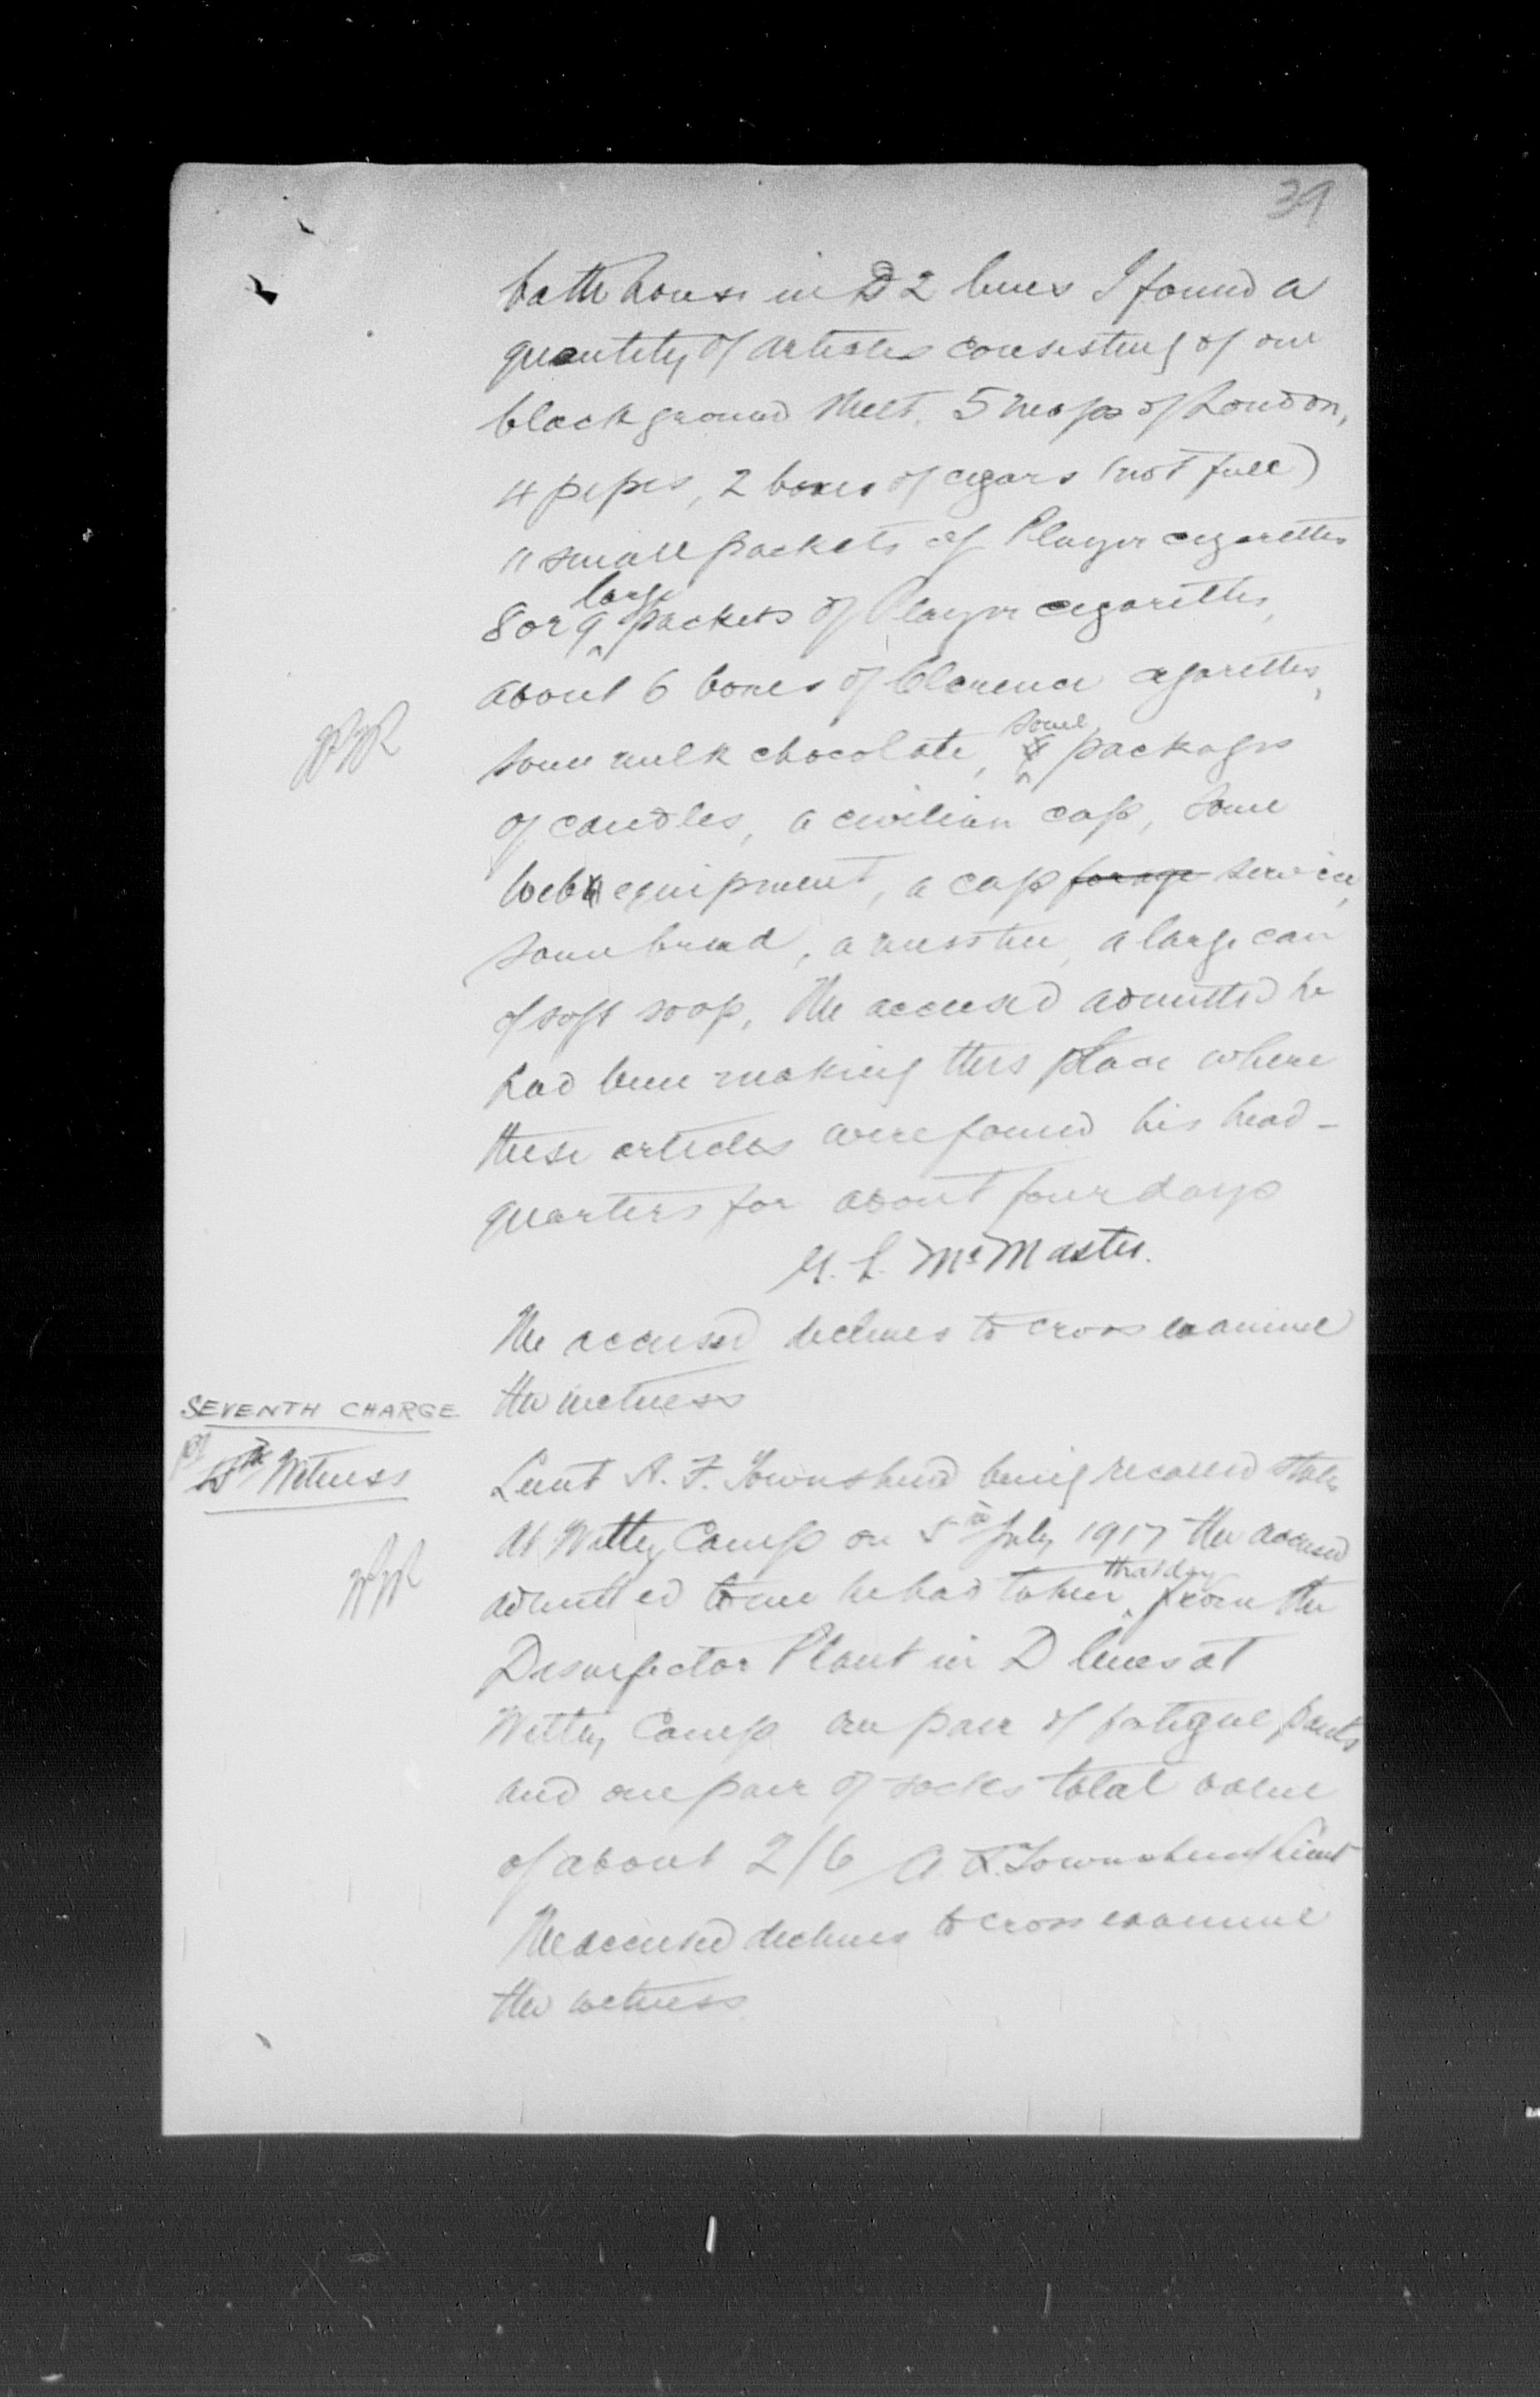 39
bath house in D2 lines I found a
quantity of articles consisting of one
black ground sheet, 5 maps of London,
4 pipes, 2 boxes of cigars (not full)
11 small packets of Player cigarettes
8 or 9 large packets of Player cigarettes,
about 6 boxes of Clarence cigarettes,
some milk chocolate, some packages
of candles, a civilian cap, some
Web equipment, a cap forage service,
some bread, a mess tin, a large can
of soft soap. The accused admitted he
had been making this place where
these articles were found his head-
quarters for about four days
McMaster.
The accused declines to cross examine
the witness
SEVENTH CHARGE
Witness
Lieut A. F. Townshend being recalled states
At Witley Camp on 5th July 1917 the accused
admitted to me he had taken that day from the
Disinfector Plant in D lines at
Witley Camp one pair of fatigue pants
and one pair of socks total value
of about 2/6 A. F. Townshend Lieut
The accused declines to cross examine
the witness.